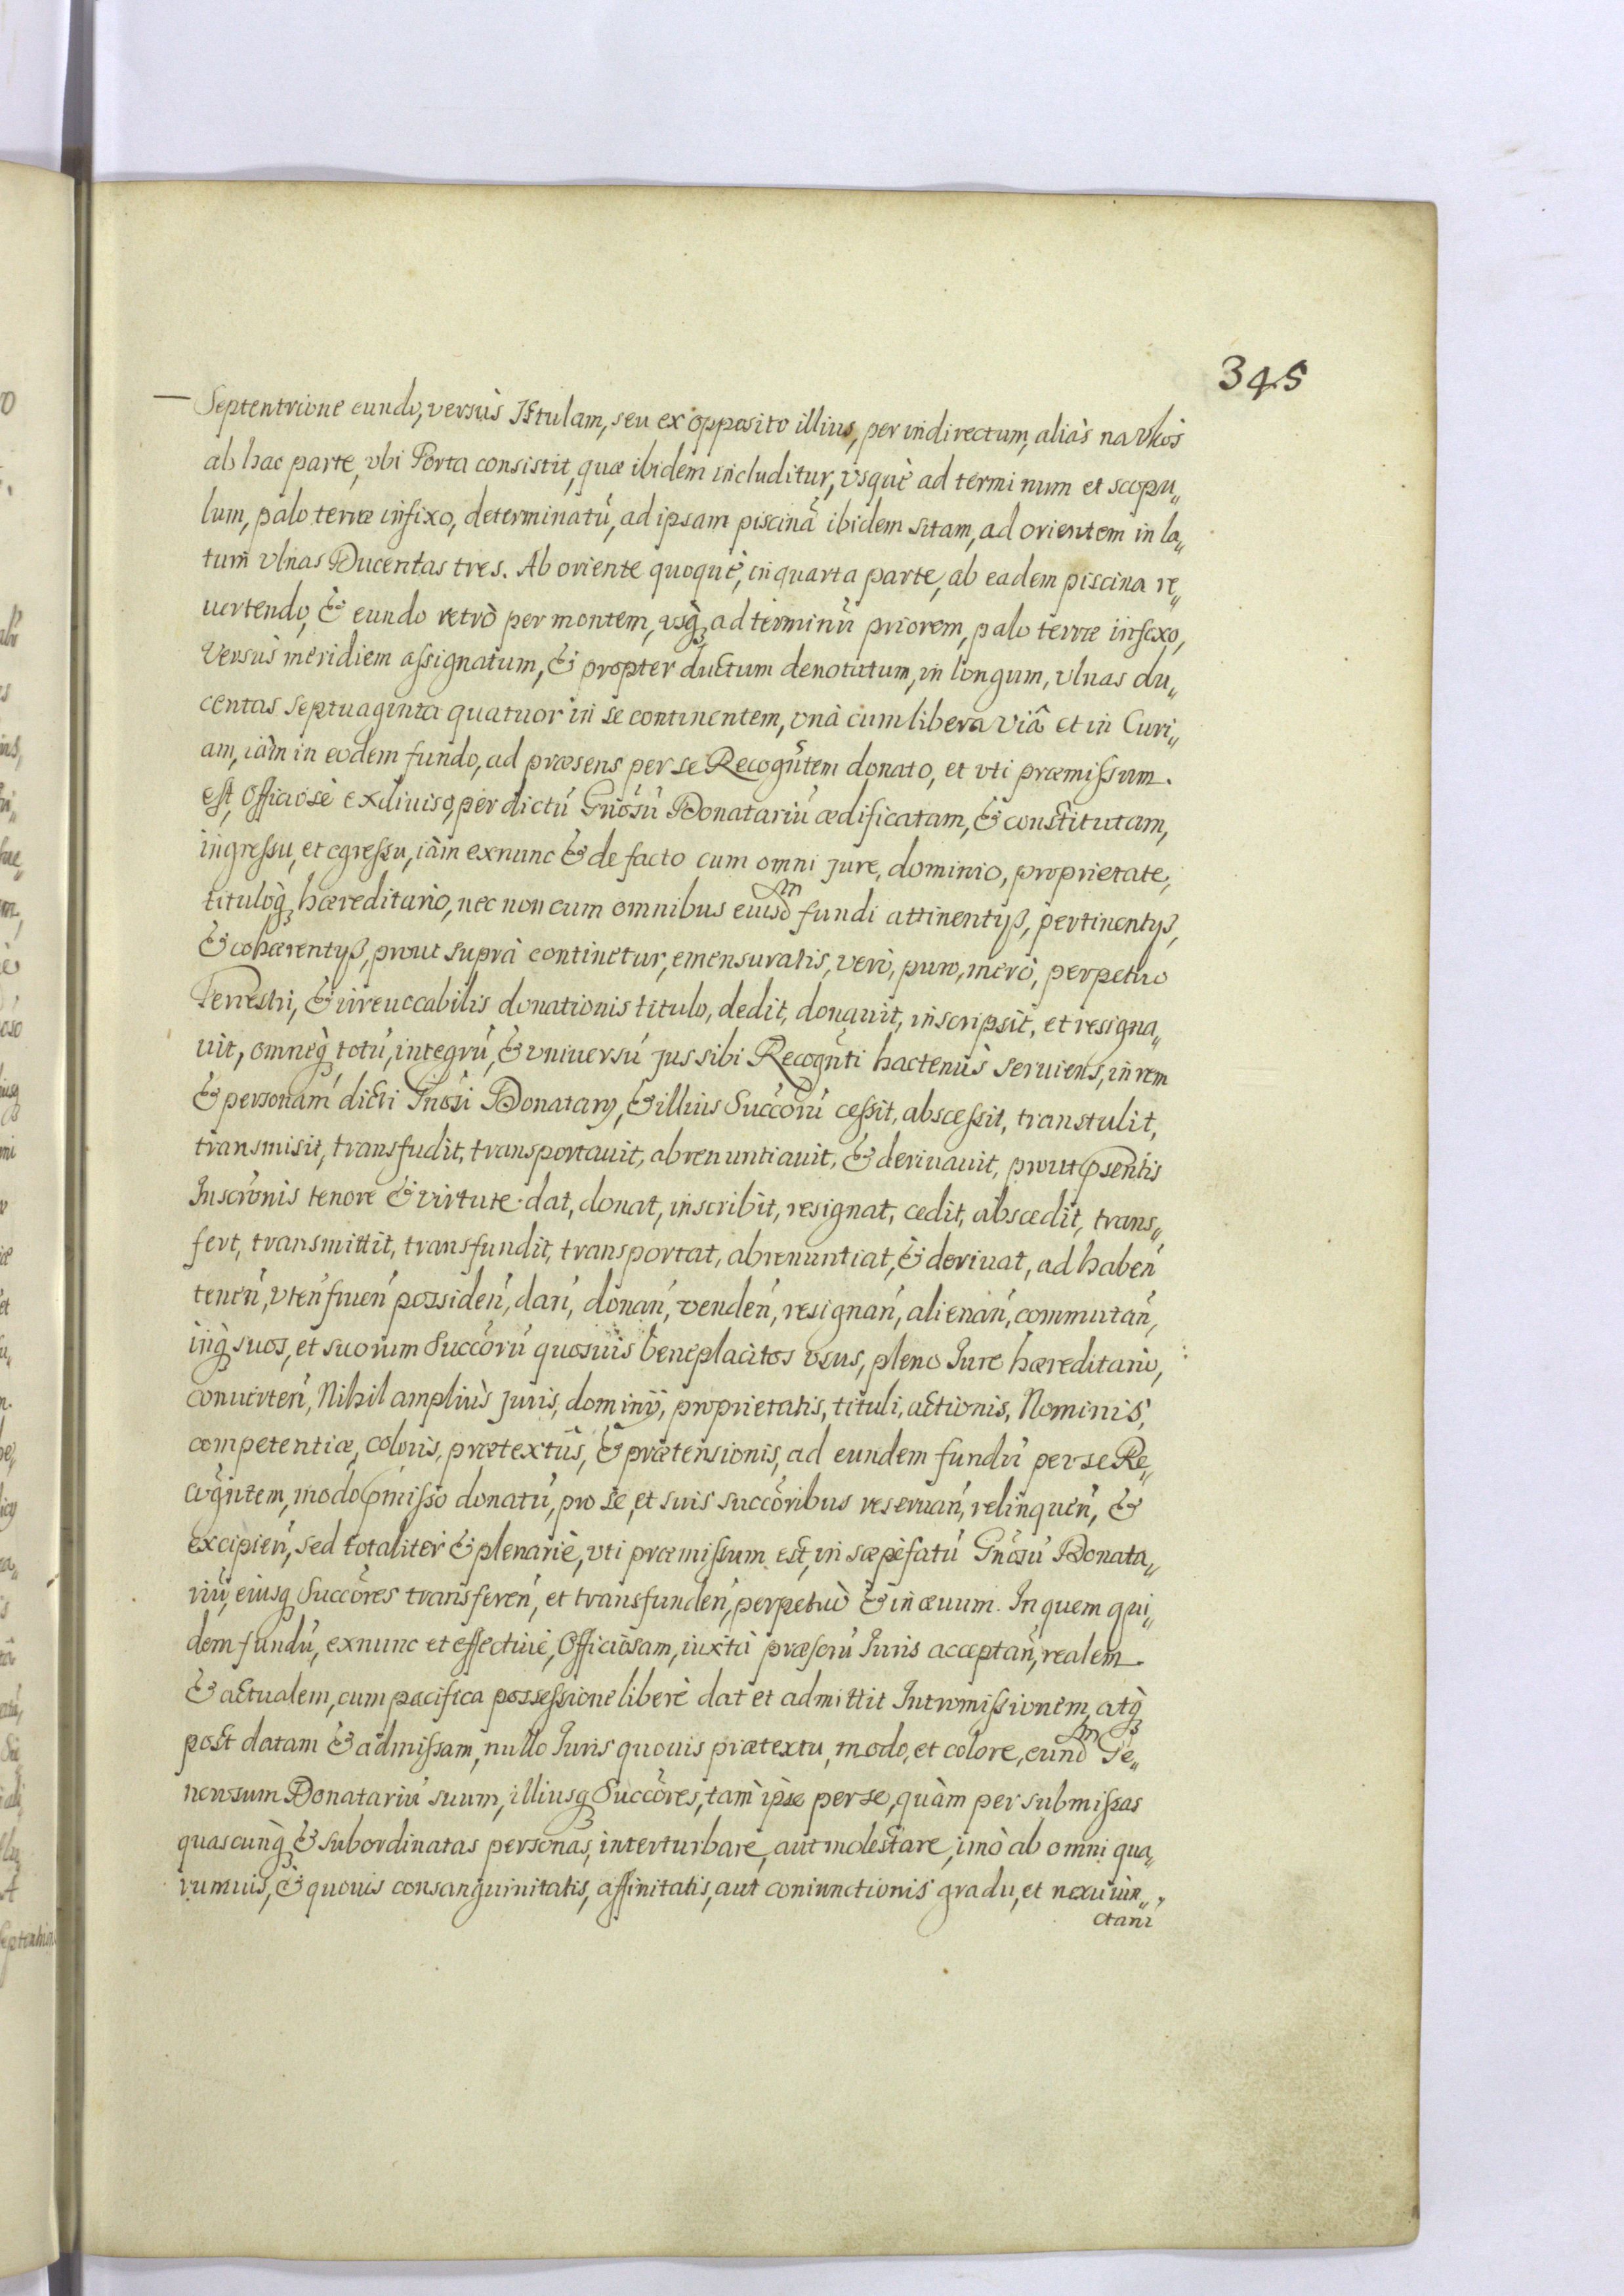 345
Septentrione eundo, versùs Istulam, seu ex opposito illius, per indirectum, aliàs na Vkos
ab hac parte, vbi Porta consistit, quæ ibidem includitur, vsquè ad terminum et scopu„
lum, palo terræ infixo, determinatũ, ad ipsam piscinã ibidem sitam, ad orientem in la„
tum vlnas Ducentas tres. Ab oriente quoquè, in quarta parte, ab eadem piscina re„
uertendo, & eundo retrò per montem, vsq; ad terminũ priorem, palo terræ infixo,
Versùs meridiem assignatum, & propter ductum denotatum, in longum, vlnas du„
centas septuaginta quatuor in se continentem, vnà cum libera viâ et in Curi„
am, iàm in eodem fundo, ad præsens per se Recogñtem donato, et vti præmissum.
est, Officiosè exdiuiso, per dictũ Gñosũ Donatariũ ædificatam, & constitutam,
ingressu, et egressu, iàm exnunc & de facto cum omni jure, dominio, proprietate,
tituloq; hæreditario, nec non cum omnibus eiusdm fundi attinentijs, pertinentijs,
& cohærentijs, prout suprà continetur, emensuratis, verò, puro, merò, perpetuo
Terrestri, & irreuocabilis donationis titulo, dedit, donauit, inscripsit, et resigna„
uit, omneq; totũ, integrũ, & vniuersũ jus sibi Recogñti hactenùs seruiens, in rem
& personam dicti Gñosi Donatarij, & illius Succorũ cessit, abscessit, transtulit,
transmisit, transfudit, transportauit, abrenuntiauit, & deriuauit, prout psentis
Inscronis tenore & virtute dat, donat, inscribit, resignat, cedit, abscedit, trans„
fert, transmittit, transfundit, transportat, abrenuntiat, & deriuat, ad habeñ
teneñ, vteñ frueñ possideñ, dañ, donañ, vendeñ, resignañ, alienañ, commutañ,
inq; suos, et suorum Succorũ quosuis beneplacitos vsus, pleno Jure hæreditario,
conuerteñ, Nihil ampliùs juris, dominij, proprietatis, tituli, actionis, Nominis,
competentiæ, coloris, prætextùs, & prætensionis, ad eundem fundũ per se Re„
cogñtem, modo pmisso donatũ, pro se, et suis succoribus reseruañ, relinqueñ, &
excipieñ, sed totaliter & plenariè, vti præmissum est, in sæpèfatũ Gñosũ Donata„
riũ, eiusq; Succores transfereñ, et transfundeñ, perpetuò & in æuum. In quem qui„
dem fundũ, exnunc et effectiuè, Officiosam, iuxtà præscrũ Juris acceptañ, realem
& actualem, cum pacifica possessione liberè dat et admittit Intromissionem, atq;
post datam & admissam, nullo Juris quouis prætextu, modo, et colore, eundm Ge„
nerosum Donatariũ suum, illiusq; Succores, tàm ipse per se, quàm per submissas
quascunq; & subordinatas personas, interturbare, aut molestare, imò ab omni qua„
rumuis, & quouis consanguinitatis, affinitatis, aut coniunctionis gradu, et nexu iun„
ctarũ